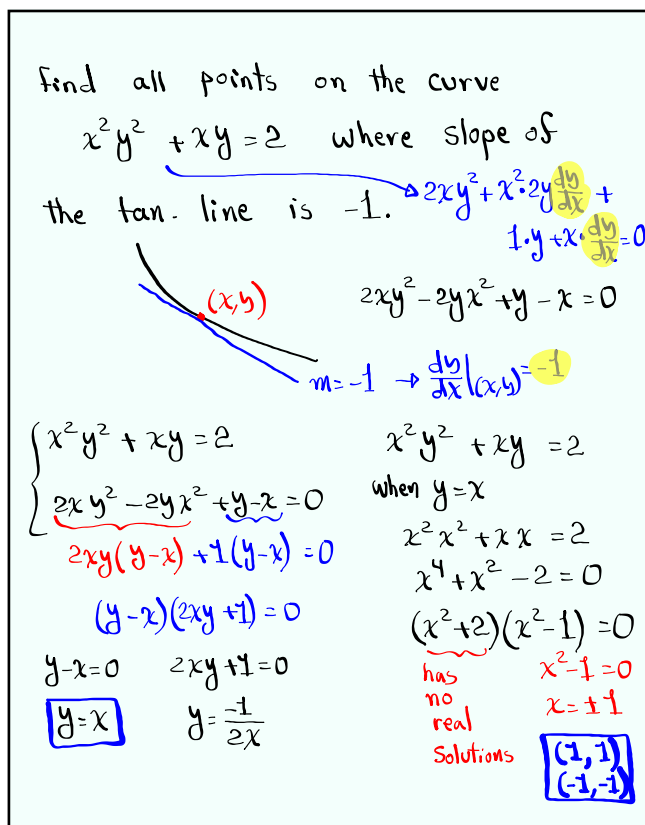 find all points on the curve
x²y² + xy = 2 where slope of
the tan. line is -1.
2xy² + x²·2y dy/dx +
1·y + x·dy/dx = 0
(x,y)
2xy² - 2yx² + y - x = 0
m = -1 → dy/dx|(x,y) = -1
x²y² + xy = 2
2xy² - 2yx² + y - x = 0
2xy(y-x) + 1(y-x) = 0
(y-x)(2xy+1) = 0
y-x=0 2xy+1=0
y=x y=-1/2x
x²y² + xy = 2
when y=x
x²x² + xx = 2
x⁴ + x² - 2 = 0
(x²+2)(x²-1) = 0
has
no
real
Solutions
x²-1=0
x=±1
(1,1)
(-1,-1)